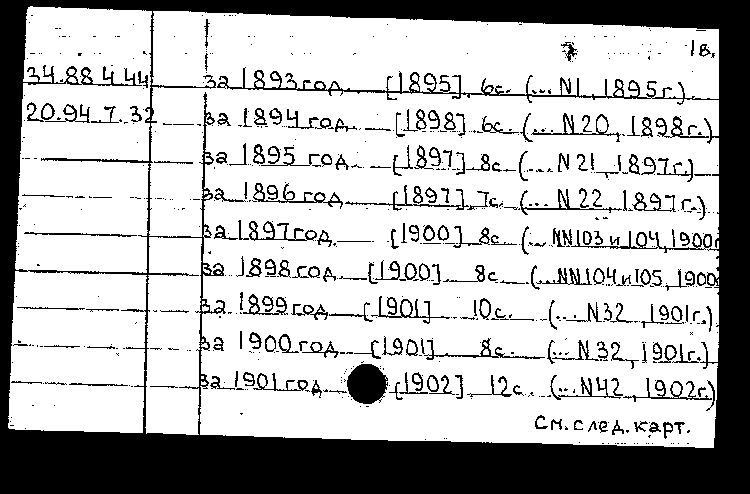 1в.
34.88.4.44 за 1893 год [1895] 6с. (... N1, 1895г.)
20.94.7.32 за 1894 год [1898] 6с (... N20, 1898г.)
за 1895 год [1897] 8с (... N21, 1897г.)
за 1896 год [1897] 7с. (... N22, 1897г.)
за 1897 год [1900] 8с (... NN103 и 104, 1900г
за 1898 год [1900] 8с (...NN104 и 105, 1900г
за 1899 год [1901] 10с. (... N32, 1901г.)
за 1900 год [1901] 8с. (... N32, 1901г.)
за 1901 год [1902] 12с. (... N42, 1902г.)
См. след. карт.